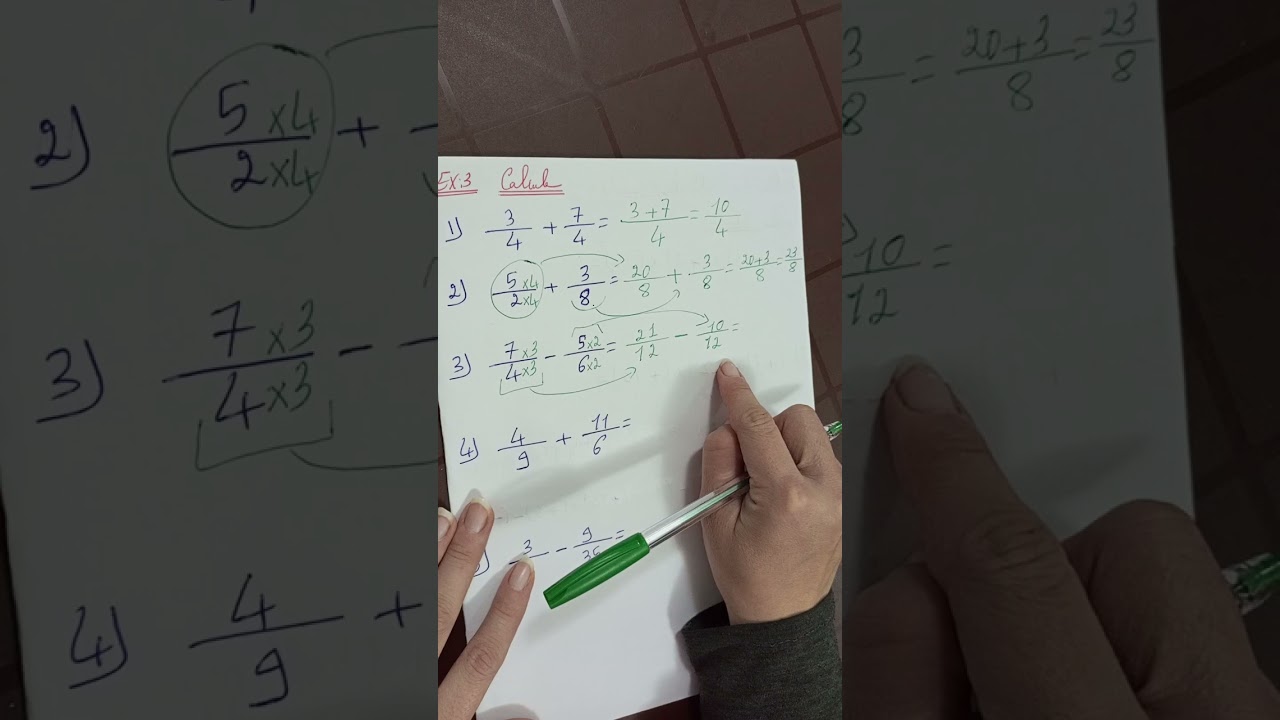 Ex.3 Calcule
1) 3/4 + 7/4 = 3+7/4 = 10/4
2) 5x4/2x4 + 3/8 = 20/8 + 3/8 = 20+3/8 = 23/8
3) 7x3/4x3 - 5x2/6x2 = 21/12 - 10/12 =
4) 4/9 + 11/6 =
) 3 - 9/36 =